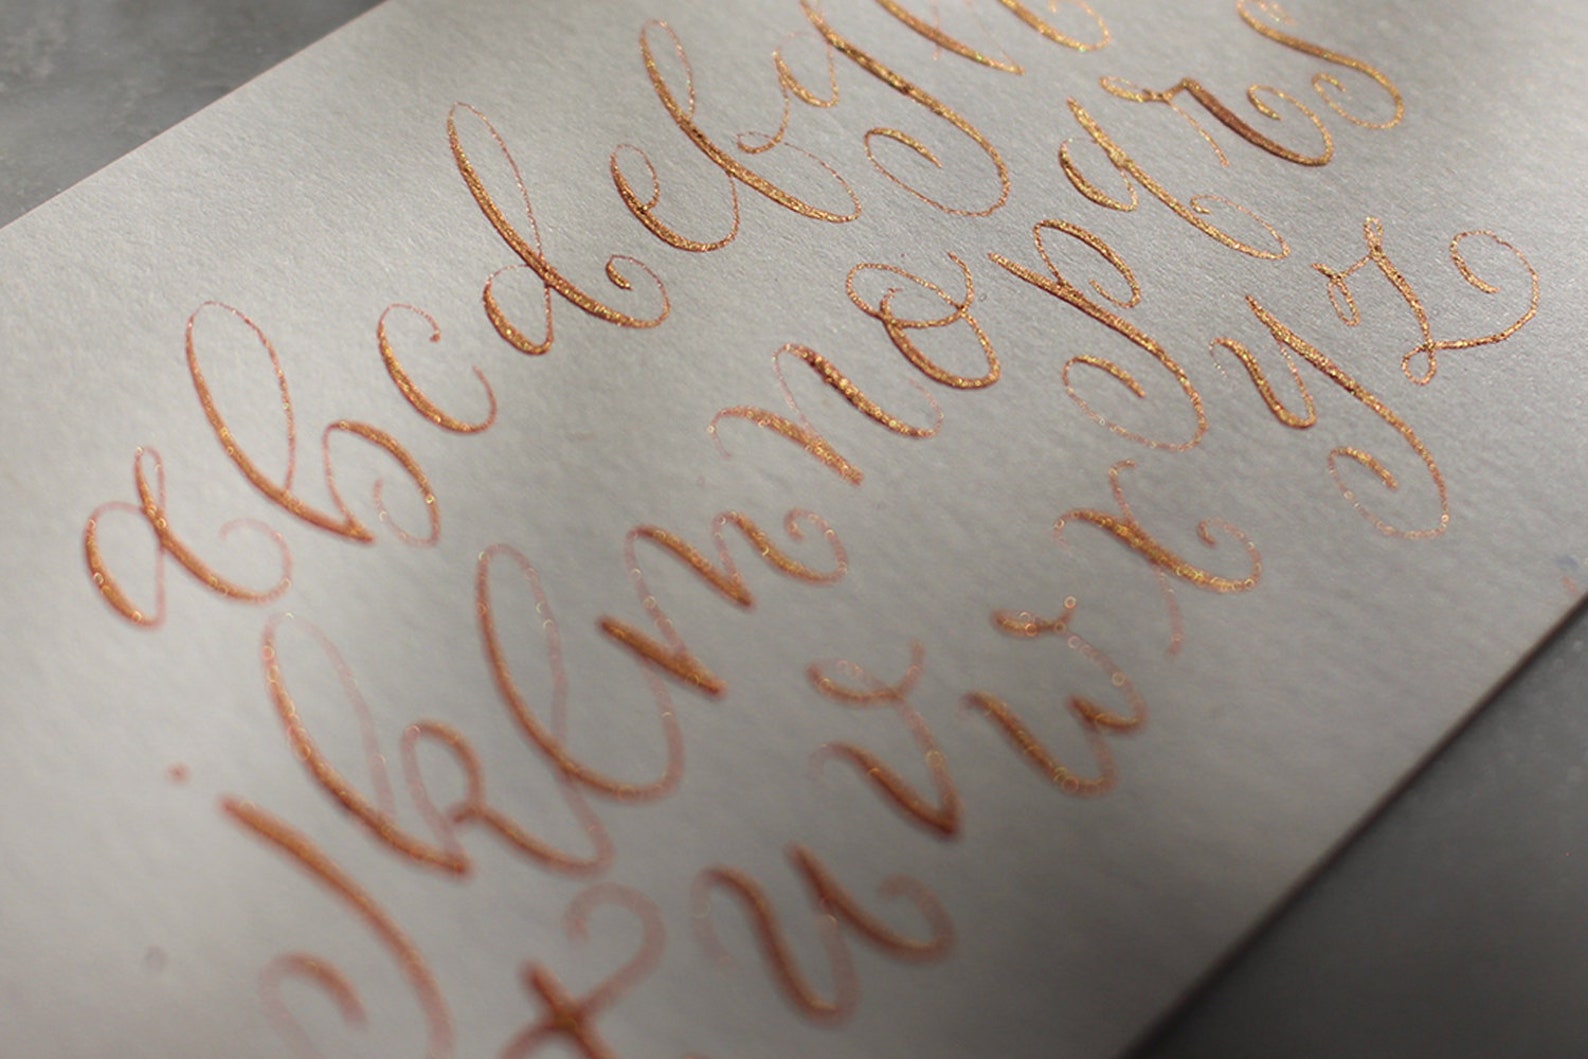 abcdefg
jklmnopqrs
tuvwxyz